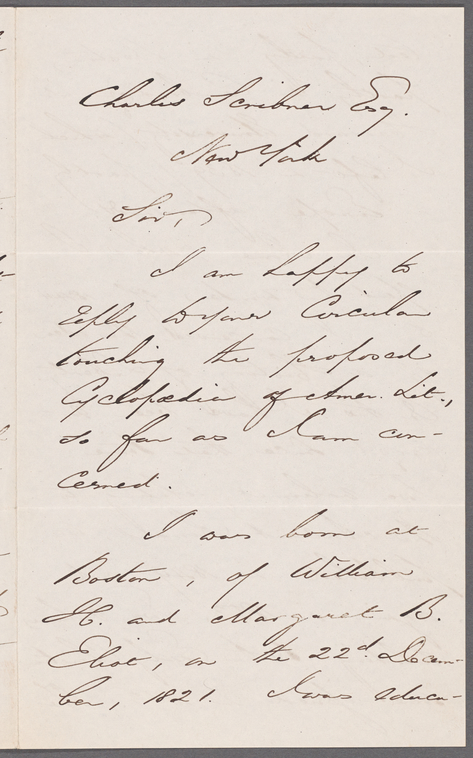 Charles Scribner Esq.
New York
Sir,
I am happy to
reply to your Circular
touching the proposed
Cyclopædia of Amer. Lit.,
so far as I am con-
cerned.
I was born at
Boston, of William
H. and Margaret B.
Eliot, on the 22d. Decem-
ber, 1821. I was educa-